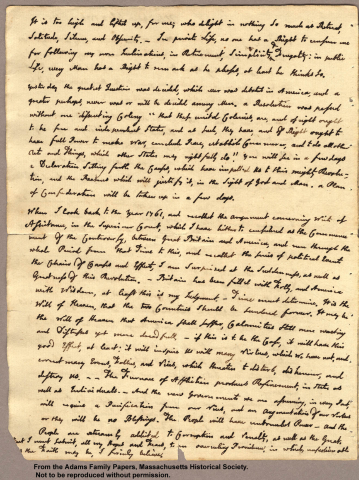 It is too high and lifted up, for me; who delight in nothing so much as Retreat,
Solitude, Silence, and Obscurity. In private Life, no one has a Right to censure me
for following my own Inclinations, in Retirement, Simplicity, Frugality: in public
Life, every Man has a Right to remark as he pleases, at least he thinks so.
Yesterday the greatest Question was decided, which ever was debated in America, and a
greater perhaps, never was or will be decided among Men. a Resolution was passed
without one dissenting Colony "that these united Colonies, are, and of right ought
to be free and independent States, and as such, they have, and of Right ought to
have full Power to make War, conclude Peace, establish Commerce, and to do all other
Acts and Things, which other States may rightfully do." You will see in a few days
a Declaration setting forth the Causes, which have impell'd Us to this mighty Revolu-
tion, and the Reasons which will justify it, in the Sight of God and Man. a Plan
of Confederation will be taken up in a few days.
When I look back to the Year 1761, and recollect the Argument concerning Writs of
Assistance, in the Superiour Court, which I have hitherto considered as the Commence-
ment of the Controversy, between Great Britain and America, and run through the
whole Period from that Time to this, and recollect the series of political Events,
the Chain of Causes and Effects, I am surprized at the Suddenness, as well as
Greatness of this Revolution. Britain has been fill'd with Folly, and America
with Wisdom, at least this is my Judgment. Time must determine. It is the
Will of Heaven, that the two Countries should be sundered forever. It may be
the Will of Heaven that America shall suffer Calamities still more wasting
and Distresses yet more dreadfull. if this is to be the Case, it will have this
good Effect, at least: it will inspire Us with many Virtues, which We have not, and
correct many Errors, Follies, and Vices, which threaten to disturb, dishonour, and
destroy Us. The Furnace of Affliction produces Refinement, in States as
well as Individuals. And the new Governments we are assuming, in every Part,
will require a Purification from our Vices, and an Augmentation of our Virtues
or they will be no Blessings. The People will have unbounded Power. And the
People are extreamly addicted to Corruption and Venality, as well as the Great.
But I must submit all my Hopes and Fears, to an overruling Providence, in which, unfashionable as
the Faith may be, I firmly believe.
From the Adams Family Papers, Massachusetts Historical Society.
Not to be reproduced without permission.